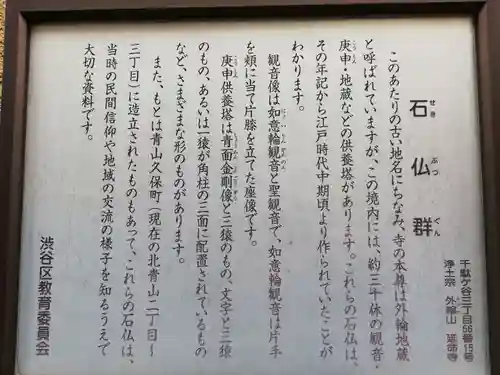 石仏群
せきぶつぐん
千駄ケ谷三丁目56番15号
浄土宗 外輪山 延命寺
このあたりの古い地名にちなみ、寺の本尊は外輪地蔵
と呼ばれていますが、この境内には、約三十体の観音・
庚申・地蔵などの供養塔があります。これらの石仏は、
その年記から江戸時代中期頃より作られていたことが
わかります。
観音像は如意輪観音と聖観音で、如意輪観音は片手
を頬に当て片膝を立てた座像です。
庚申供養塔は青面金剛像と三猿のもの、文字と三猿
のもの、あるいは一猿が角柱の三面に配置されているもの
など、さまざまな形のものがあります。
また、もとは青山久保町(現在の北青山二丁目~
三丁目)に造立されたものもあって、これらの石仏は、
当時の民間信仰や地域の交流の様子を知るうえで
大切な資料です。
渋谷区教育委員会